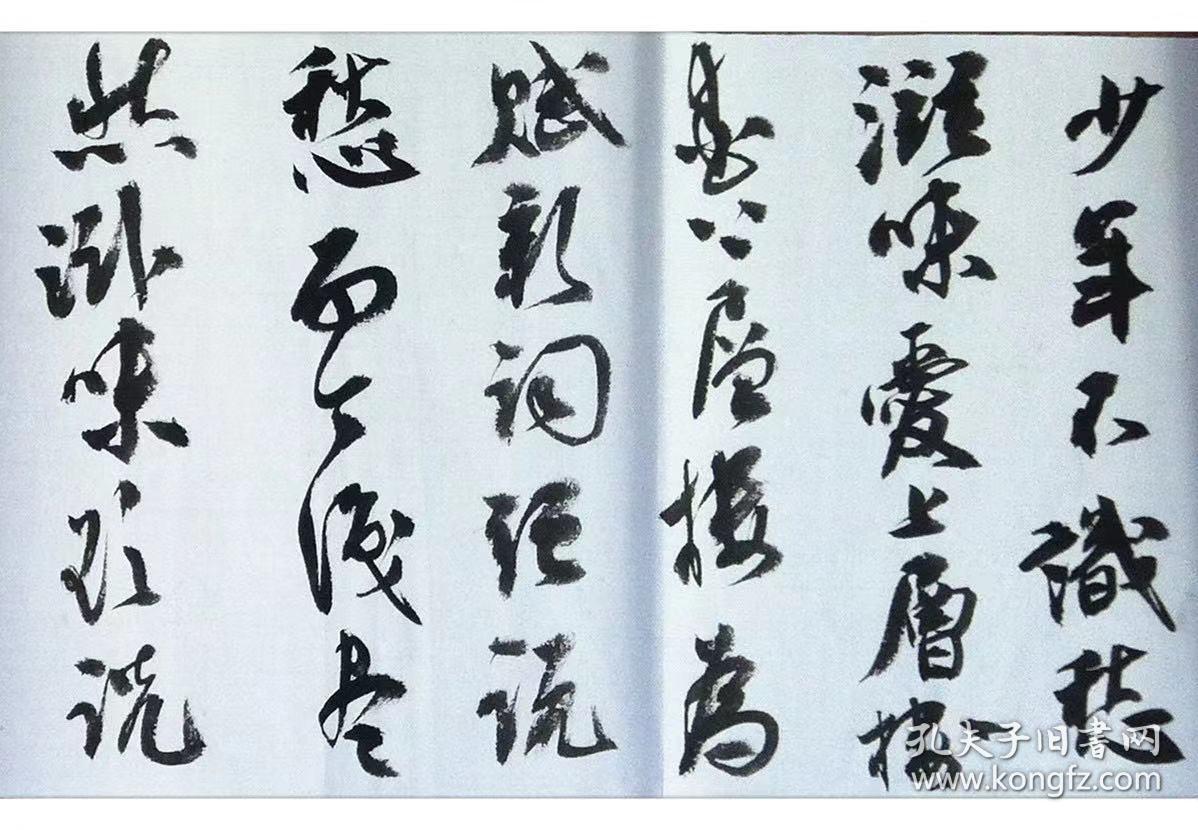 少年不識愁
滋味愛上層樓
愛上層樓為
賦新詞強說
愁而今識尽
愁滋味欲說
孔夫子旧書网
www.kongfz.com